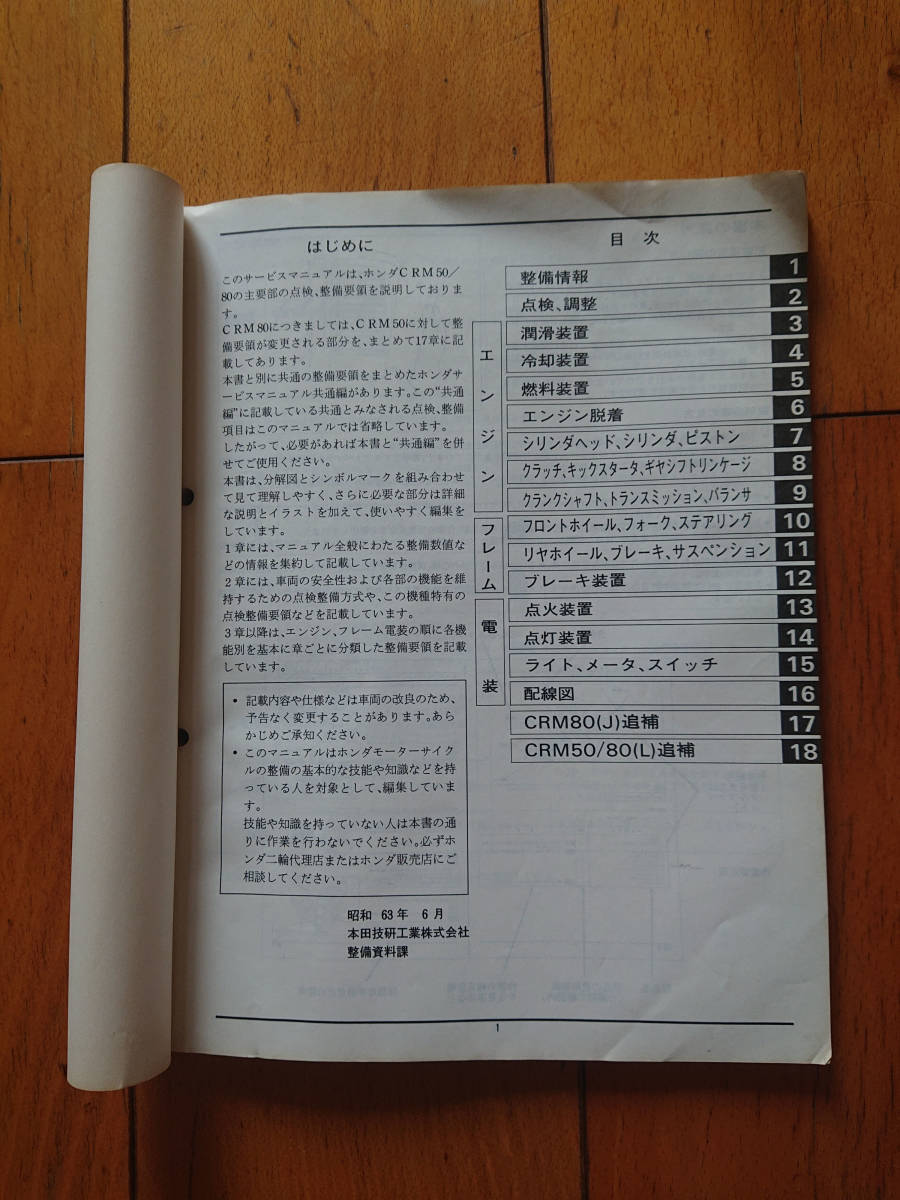 はじめに
このサービスマニュアルは、ホンダCRM50/
80の主要部の点検、整備要領を説明しておりま
す。
CRM80につきましては、CRM50に対して整
備要領が変更される部分を、まとめて17章に記
載してあります。
本書と別に共通の整備要領をまとめたホンダサ
ービスマニュアル共通編があります。この“共通
編”に記載している共通とみなされる点検、整備
項目はこのマニュアルでは省略しています。
したがって、必要があれば本書と“共通編”を併
せてご使用ください。
本書は、分解図とシンボルマークを組み合わせ
て見て理解しやすく、さらに必要な部分は詳細
な説明とイラストを加えて、使いやすく編集を
しています。
1章には、マニュアル全般にわたる整備数値な
どの情報を集約して記載しています。
2章には、車両の安全性および各部の機能を維
持するための点検整備方式や、この機種特有の
点検整備要領などを記載しています。
3章以降は、エンジン、フレーム電装の順に各機
能別を基本に章ごとに分類した整備要領を記載
しています。
• 記載内容や仕様などは車両の改良のため、
予告なく変更することがあります。あら
かじめご承知ください。
• このマニュアルはホンダモーターサイク
ルの整備の基本的な技能や知識などを持
っている人を対象として、編集していま
す。
技能や知識を持っていない人は本書の通
りに作業を行わないでください。必ずホ
ンダ二輪代理店またはホンダ販売店にご
相談してください。
昭和 63年 6月
本田技研工業株式会社
整備資料課
目次
整備情報 1
点検、調整 2
エンジン
潤滑装置 3
冷却装置 4
燃料装置 5
エンジン脱着 6
シリンダヘッド、シリンダ、ピストン 7
クラッチ、キックスタータ、ギヤシフトリンケージ 8
クランクシャフト、トランスミッション、バランサ 9
フレーム
フロントホイール、フォーク、ステアリング 10
リヤホイール、ブレーキ、サスペンション 11
ブレーキ装置 12
電装
点火装置 13
点灯装置 14
ライト、メータ、スイッチ 15
配線図 16
CRM80(J)追補 17
CRM50/80(L)追補 18
1